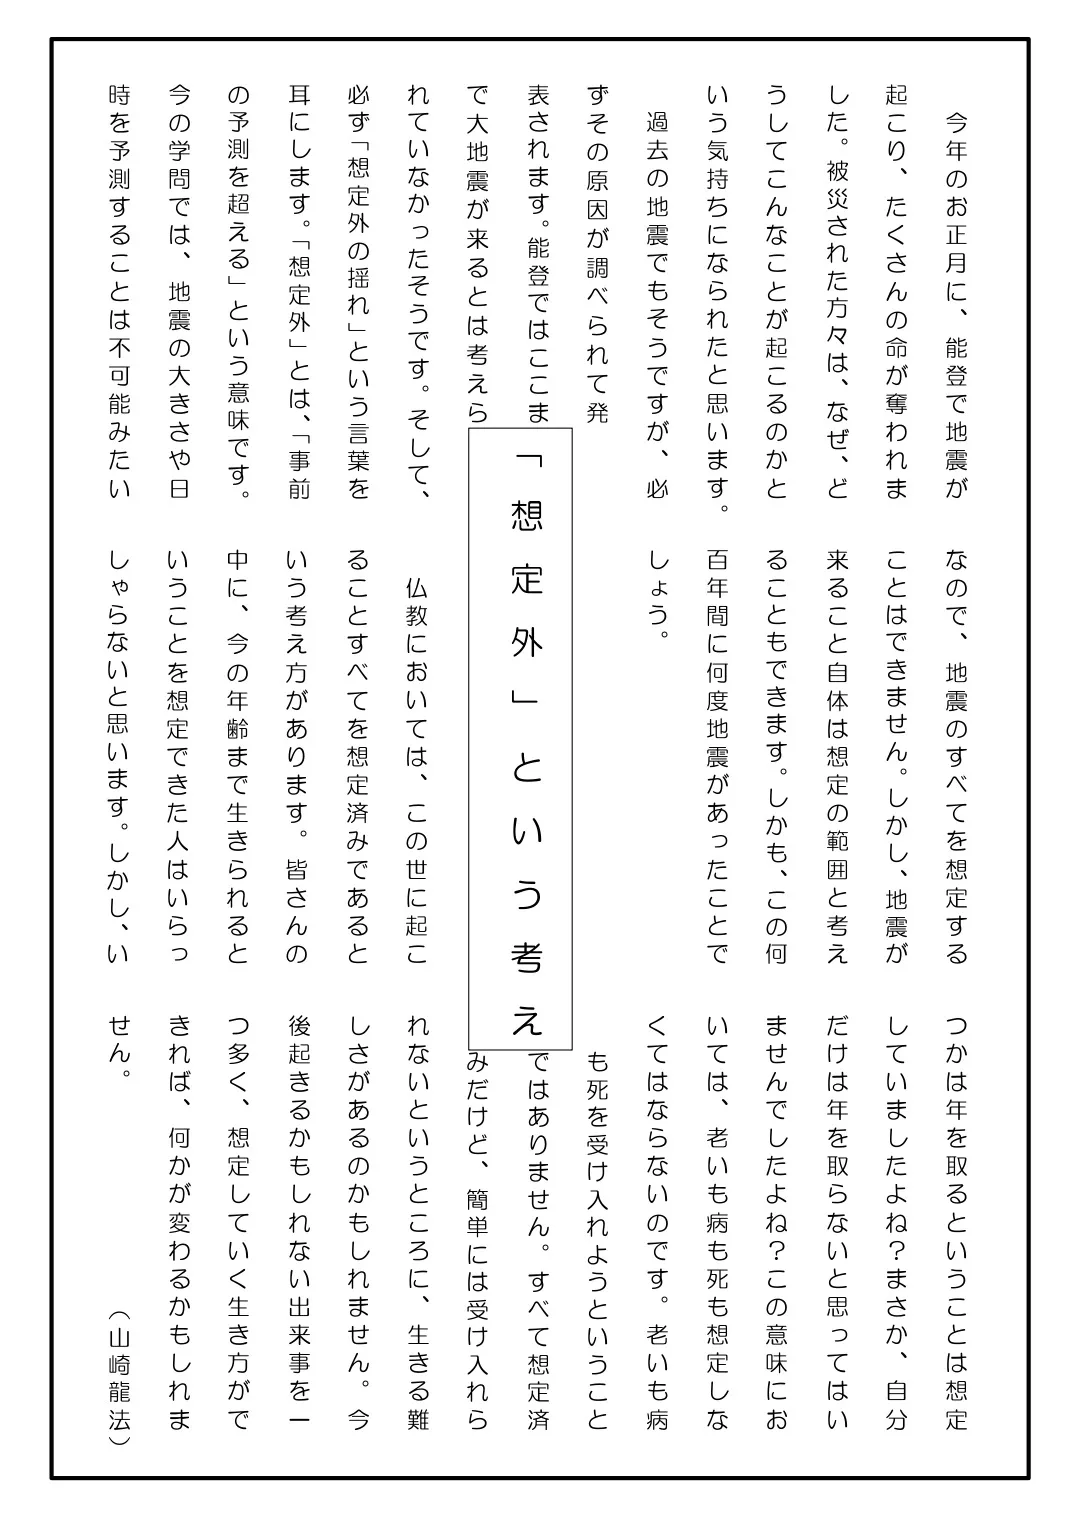 「想定外」という考え
今年のお正月に、能登で地震が
起こり、たくさんの命が奪われま
した。被災された方々は、なぜ、ど
うしてこんなことが起こるのかと
いう気持ちになられたと思います。
過去の地震でもそうですが、必
ずその原因が調べられて発
表されます。能登ではここま
で大地震が来るとは考えら
れていなかったそうです。そして、
必ず「想定外の揺れ」という言葉を
耳にします。「想定外」とは、「事前
の予測を超える」という意味です。
今の学問では、地震の大きさや日
時を予測することは不可能みたい
なので、地震のすべてを想定する
ことはできません。しかし、地震が
来ること自体は想定の範囲と考え
ることもできます。しかも、この何
百年間に何度地震があったことで
しょう。
仏教においては、この世に起こ
ることすべてを想定済みであると
いう考え方があります。皆さんの
中に、今の年齢まで生きられると
いうことを想定できた人はいらっ
しゃらないと思います。しかし、い
つかは年を取るということは想定
していましたよね？まさか、自分
だけは年を取らないと思ってはい
ませんでしたよね？この意味にお
いては、老いも病も死も想定しな
くてはならないのです。老いも病
も死を受け入れようということ
ではありません。すべて想定済
みだけど、簡単には受け入れら
れないというところに、生きる難
しさがあるのかもしれません。今
後起きるかもしれない出来事を一
つ多く、想定していく生き方がで
きれば、何かが変わるかもしれま
せん。
（山崎龍法）